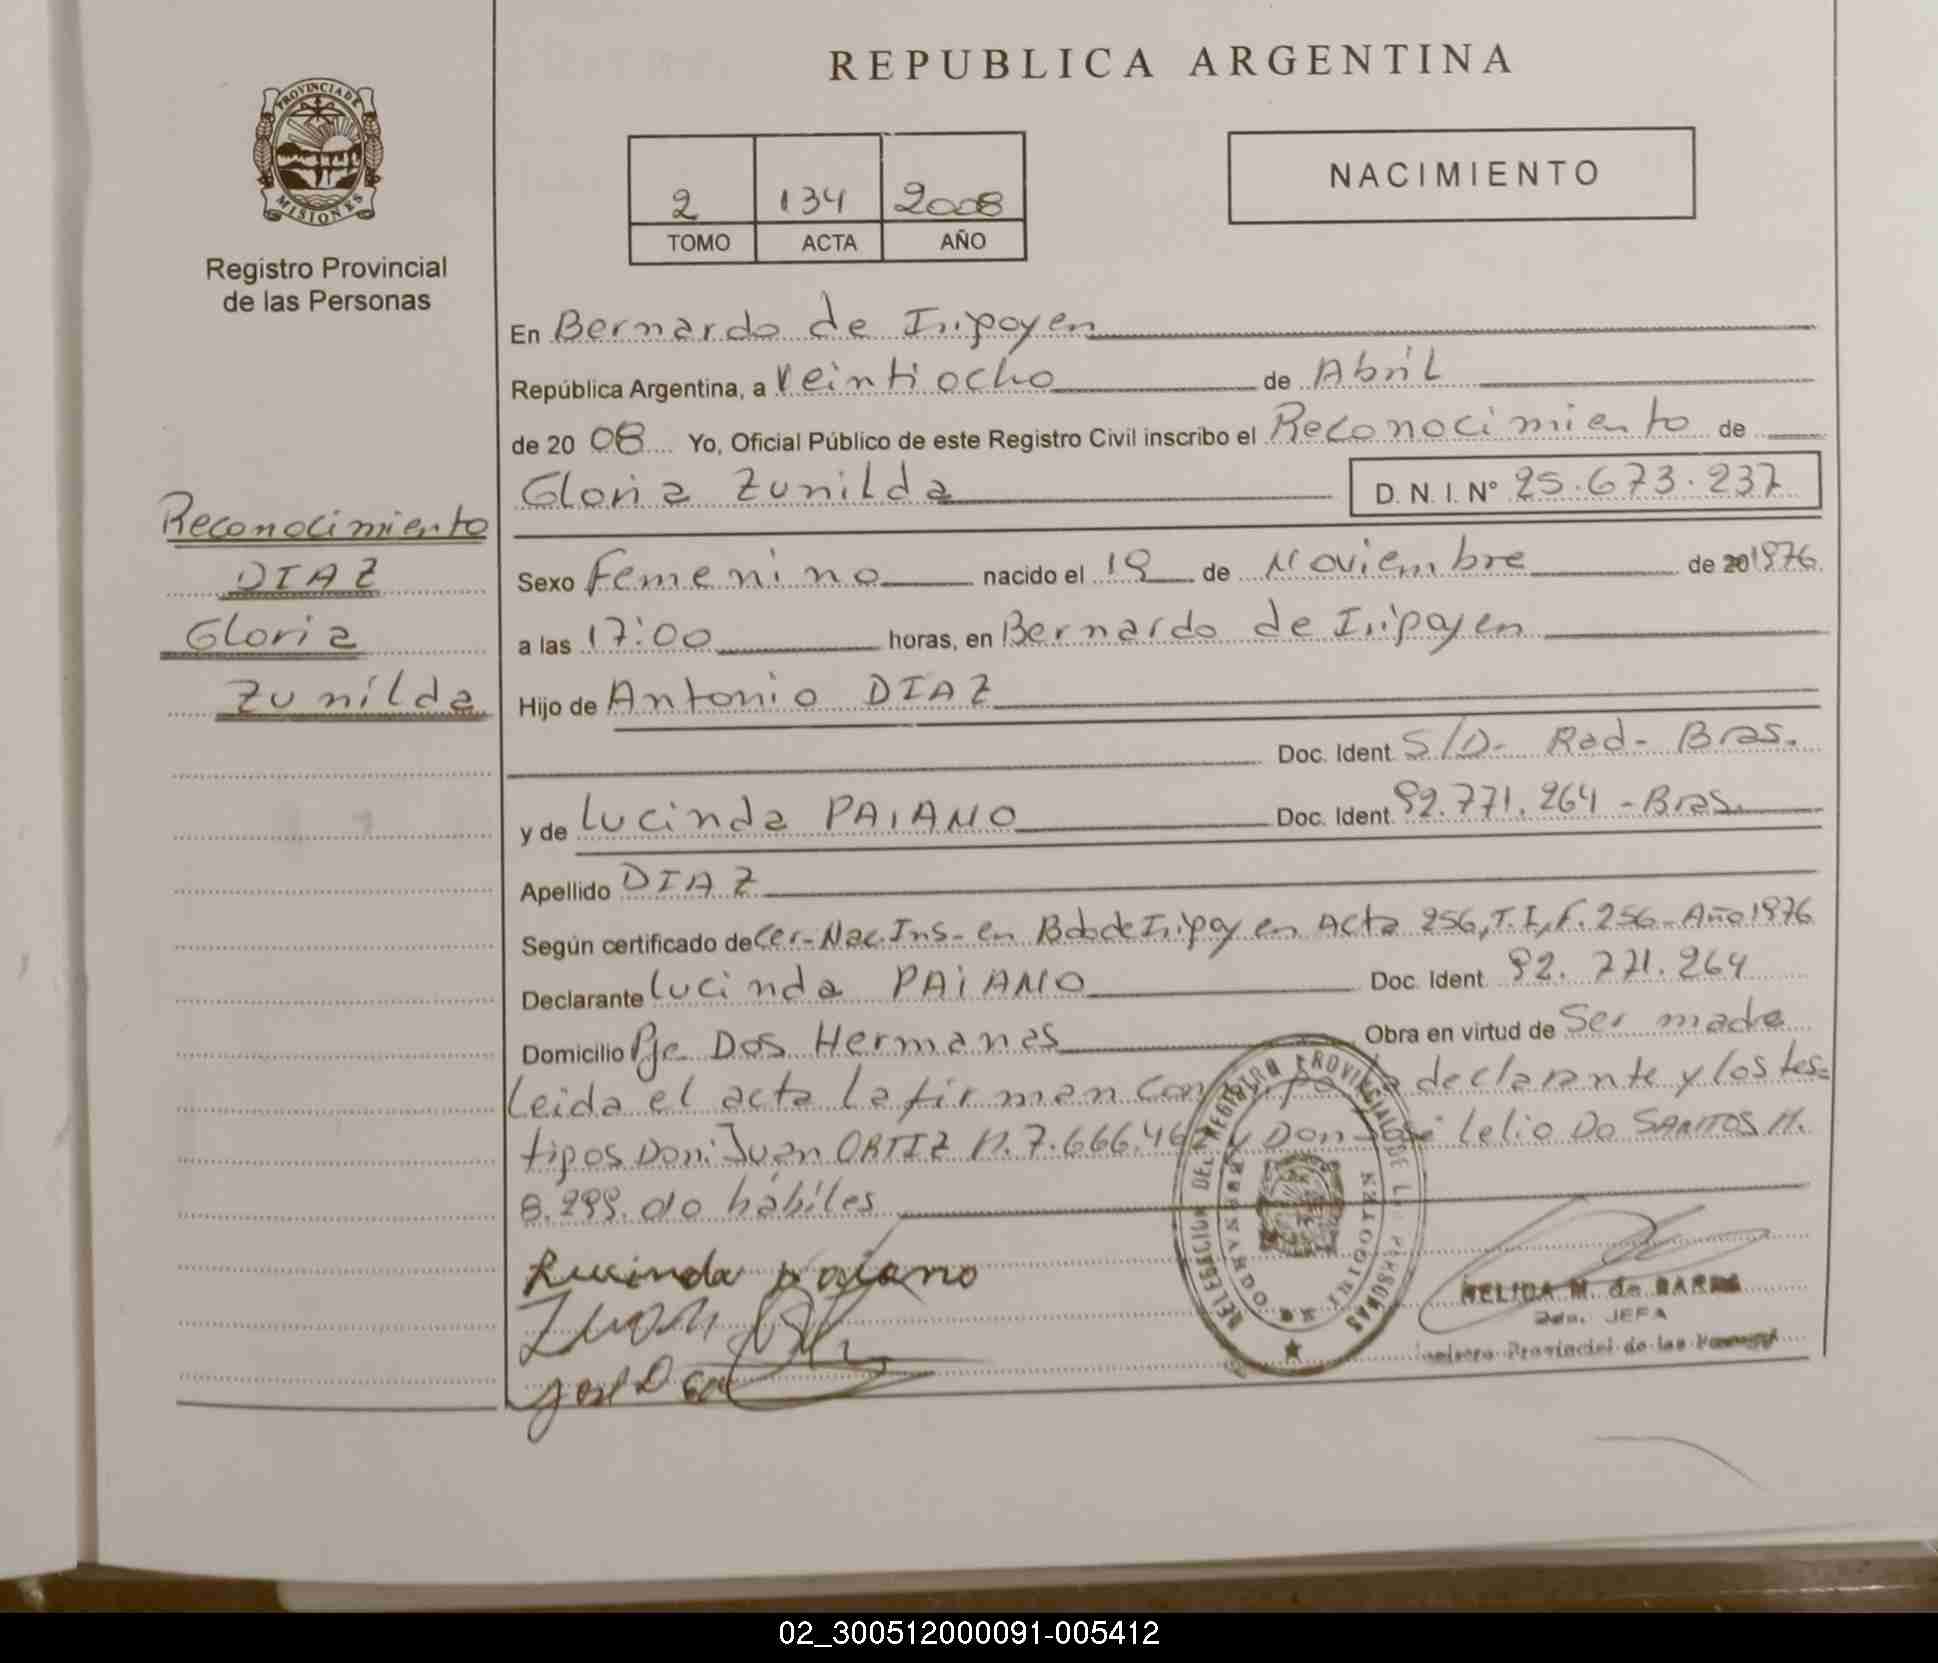 REPUBLICA ARGENTINA
PROVINCIA DE
MISIONES
Registro Provincial
de las Personas
2 134 2008
TOMO ACTA AÑO
NACIMIENTO
En Bernardo de Irigoyen
República Argentina, a Veintiocho de Abril
de 20 08 Yo, Oficial Público de este Registro Civil inscribo el Reconocimiento de
Gloria Zunilda D. N. I. Nº 25.673.237
Reconocimiento
DIAZ
Gloria
Zunilda
Sexo Femenino nacido el 19 de Noviembre de 20 1976
a las 17:00 horas, en Bernardo de Irigoyen
Hijo de Antonio DIAZ
Doc. Ident. S/D- Rad- Bras.
y de Lucinda PAIANO Doc. Ident. 92.771.264 - Bras.
Apellido DIAZ
Según certificado de Cer-Nac. Ins- en Bdo de Irigoyen Acta 256, T. I, F. 256- Año 1976
Declarante Lucinda PAIANO Doc. Ident. 92.771.264
Domicilio Pje Dos Hermanas Obra en virtud de Ser madre
Leida el acta la firman declarante y los tes=
tigos Don: Juan ORTIZ M. 7.666.46 y Don José Lelio DO SANTOS M.
8.299. hábiles
Lucinda paiano
DELEGACION DEL REGISTRO PROVINCIAL DE LAS PERSONAS
BERNARDO DE IRIGOYEN
NELIDA M. de
JEFA
Provincial de las
02_300512000091-005412